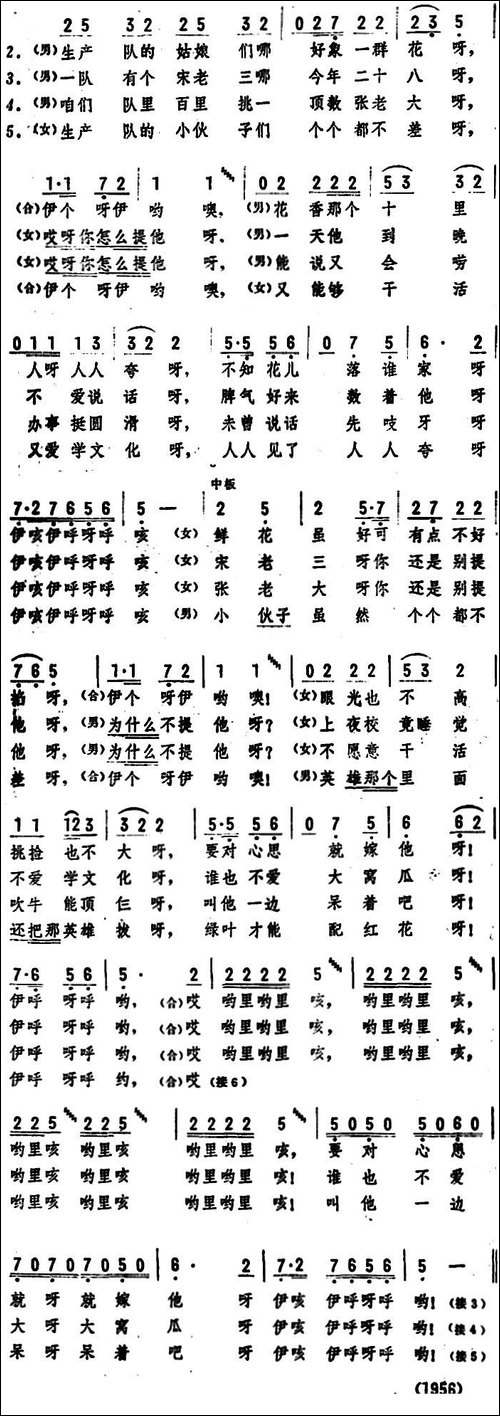 2 5 3 2 2 5 3 2 0 2 2 7 2 2 2 3 5
2.(男)生产 队的 姑娘 们哪 好象 一群 花 呀,
3.(男)一队 有个 宋老 三哪 今年 二十 八 呀,
4.(男)咱们 队里 百里 挑一 顶数 张老 大 呀,
5.(女)生产 队的 小伙 子们 个个 都不 差 呀,
1·1 7 2 1 1 0 2 2 2 2 5 3 3 2
(合)伊个 呀伊 哟 噢,(男)花 香那个 十 里
(女)哎呀你怎么提他 呀。(男)一 天他 到 晚
(女)哎呀你怎么提他 呀,(男)能 说又 会 唠
(合)伊个 呀伊 哟 噢,(女)又 能够 干 活
0 1 1 1 1 3 3 2 2 5·5 5 6 0 7 5 6· 2
人呀 人人 夸 呀, 不知 花儿 落 谁 家 呀
不 爱说 话 呀, 脾气 好来 数 着 他 呀
办事 挺圆 滑 呀, 未曾 说话 先 吱 牙 呀
又爱 学文 化 呀, 人人 见了 人 人 夸 呀
中板
7·2 7 6 5 6 5 — 2 5 2 5·7 2 7 2 2
伊咳伊呼呀呼 咳 (女) 鲜 花 虽 好可 有点 不好
伊咳伊呼呀呼 咳 (女) 宋 老 三 呀你 还是 别提
伊咳伊呼呀呼 咳 (女) 张 老 大 呀你 还是 别提
伊咳伊呼呀呼 咳 (男) 小 伙子 虽 然 个个 都不
7 6 5 1·1 7 2 1 1 0 2 2 2 5 3 2
掐 呀,(合)伊个 呀伊 哟 噢!(女)眼 光也 不 高
他 呀,(男)为什么不提 他 呀?(女)上 夜校 竟睡 觉
他 呀,(男)为什么不提 他 呀?(女)不 愿意 干 活
差 呀,(合)伊个 呀伊 哟 噢!(男)英 雄那个 里 面
1 1 1 2 3 3 2 2 5·5 5 6 0 7 5 6 6 2
挑捡 也不 大 呀, 要对 心思 就 嫁 他 呀!
不爱 学文 化 呀, 谁也 不爱 大 窝 瓜 呀!
吹牛 能顶 仨 呀, 叫他 一边 呆 着 吧 呀!
还把那英雄 拔 呀, 绿叶 才能 配 红 花 呀!
7·6 5 6 5· 2 2 2 2 2 5 2 2 2 2 5
伊呼 呀呼 哟,(合)哎 哟里哟里 咳, 哟里哟里 咳,
伊呼 呀呼 哟,(合)哎 哟里哟里 咳, 哟里哟里 咳,
伊呼 呀呼 哟,(合)哎 哟里哟里 咳, 哟里哟里 咳,
伊呼 呀呼 约,(合)哎 (接6)
2 2 5 2 2 5 2 2 2 2 5 5 0 5 0 5 0 6 0
哟里咳 哟里咳 哟里哟里 咳, 要 对 心 思
哟里咳 哟里咳 哟里哟里 咳! 谁 也 不 爱
哟里咳 哟里咳 哟里哟里 咳! 叫 他 一 边
7 0 7 0 7 0 5 0 6· 2 7·2 7 6 5 6 5 —
就 呀 就 嫁 他 呀 伊咳 伊呼呀呼 哟!(接3)
大 呀 大 窝 瓜 呀 伊咳 伊呼呀呼 哟!(接4)
呆 呀 呆 着 吧 呀 伊咳 伊呼呀呼 哟!(接5)
(1956)